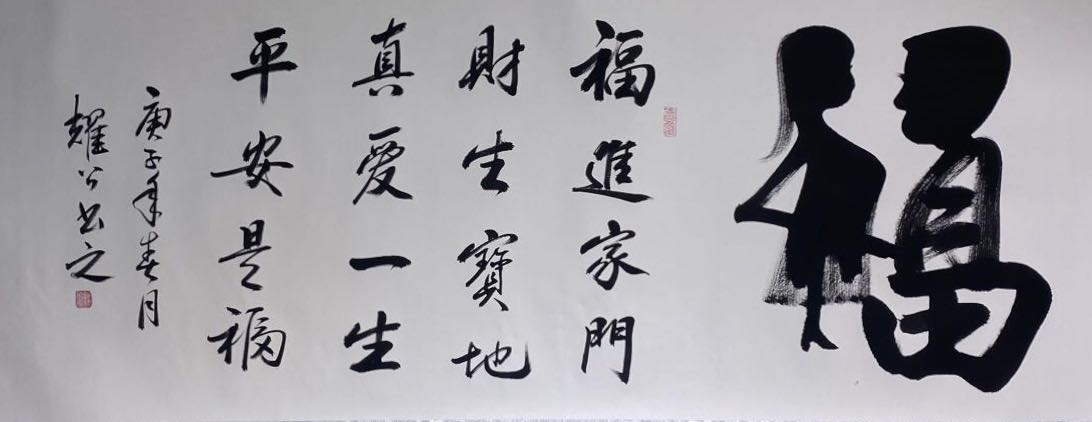 福
福進家門
財生寶地
真愛一生
平安是福
庚子年春月
耀公书之